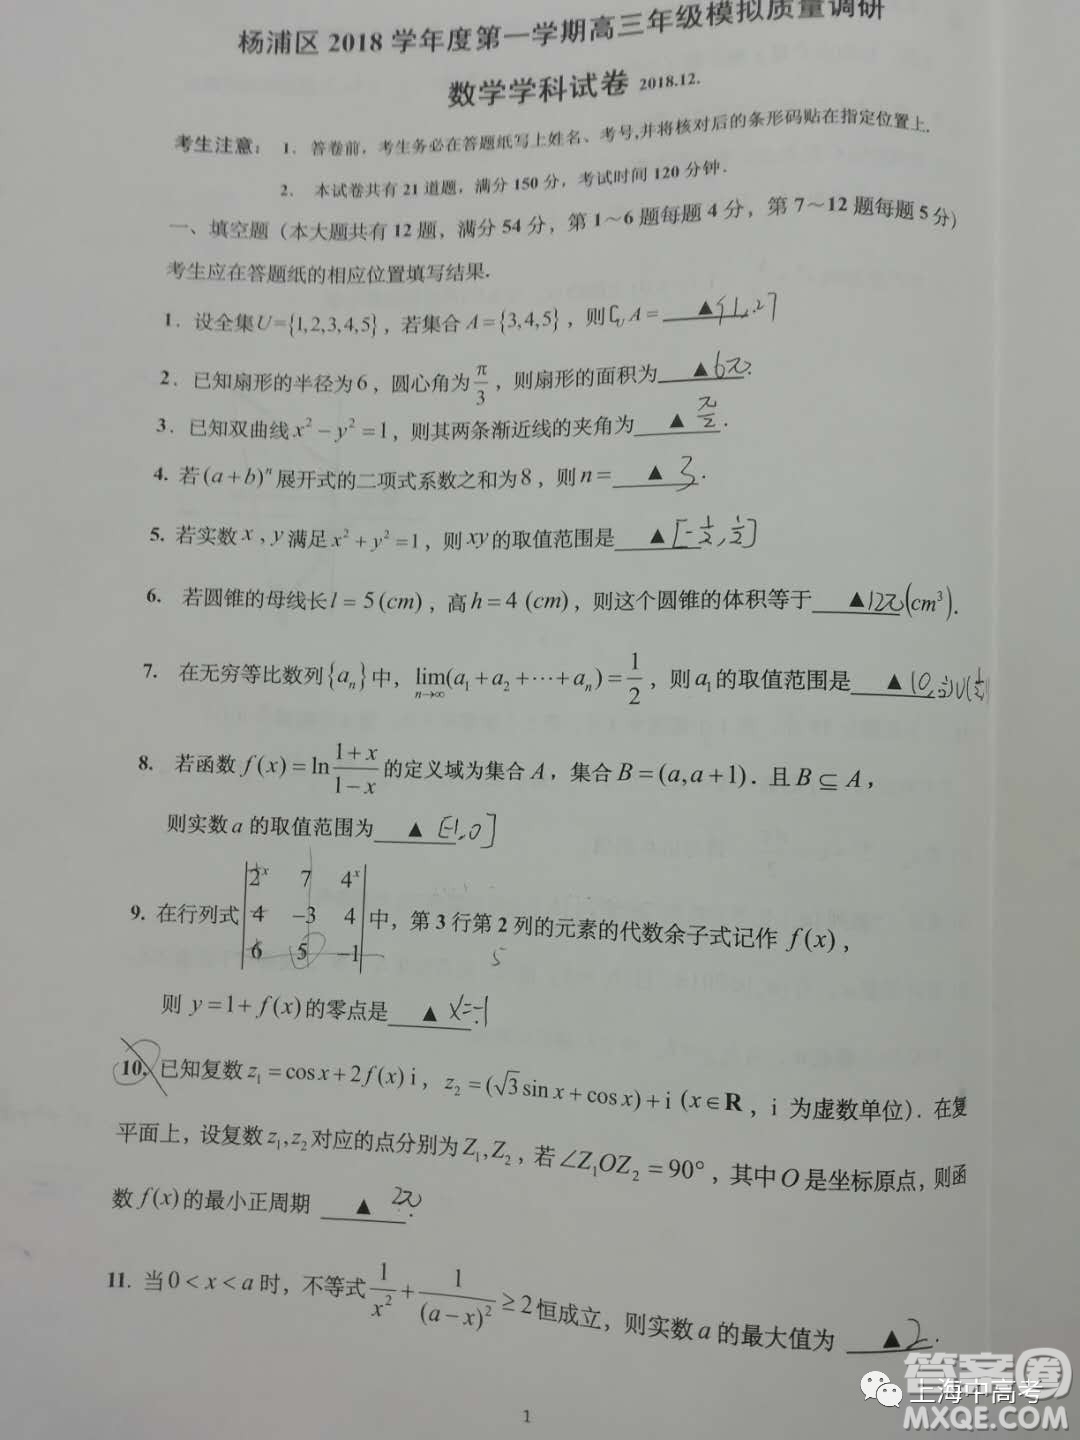 杨浦区 2018 学年度第一学期高三年级模拟质量调研
数学学科试卷 2018.12.
考生注意： 1． 答卷前，考生务必在答题纸写上姓名、考号,并将核对后的条形码贴在指定位置上.
2． 本试卷共有 21 道题，满分 150 分，考试时间 120 分钟．
一、填空题（本大题共有 12 题，满分 54 分，第 1～6 题每题 4 分，第 7～12 题每题 5 分）
考生应在答题纸的相应位置填写结果.
1．设全集U={1,2,3,4,5}，若集合 A={3,4,5}，则∁UA=____▲{1,2}
2．已知扇形的半径为 6，圆心角为 π/3，则扇形的面积为____▲6π.
3．已知双曲线 x²－y²=1，则其两条渐近线的夹角为____▲ π/2．
4. 若 (a+b)ⁿ 展开式的二项式系数之和为 8，则 n=____▲ 3．
5. 若实数 x，y 满足 x²+y²=1，则 xy 的取值范围是____▲[-1/2,1/2]
6. 若圆锥的母线长 l=5(cm)，高 h=4(cm)，则这个圆锥的体积等于____▲12π(cm³)．
7. 在无穷等比数列{aₙ}中，lim n→∞ (a₁+a₂+⋯+aₙ)=1/2，则 a₁ 的取值范围是____▲(0,1/2)∪(1/2,1)
8. 若函数 f(x)=ln (1+x)/(1-x) 的定义域为集合 A，集合 B=(a,a+1)．且 B⊆A，
则实数 a 的取值范围为____▲[-1,0]
2ˣ 7 4ˣ
9. 在行列式 4 -3 4 中，第 3 行第 2 列的元素的代数余子式记作 f(x)，
6 5 -1
5
则 y=1+f(x) 的零点是____▲ x=-1
10. 已知复数 z₁=cosx+2f(x)i，z₂=(√3sinx+cosx)+i (x∈R，i 为虚数单位)．在复
平面上，设复数 z₁,z₂ 对应的点分别为 Z₁,Z₂，若 ∠Z₁OZ₂=90°，其中 O 是坐标原点，则函
数 f(x) 的最小正周期 ____▲ 2π.
11. 当 0<x<a 时，不等式 1/x²+1/(a-x)²≥2 恒成立，则实数 a 的最大值为 ____▲2．
1
上海中高考
答案圈
MXQE.COM